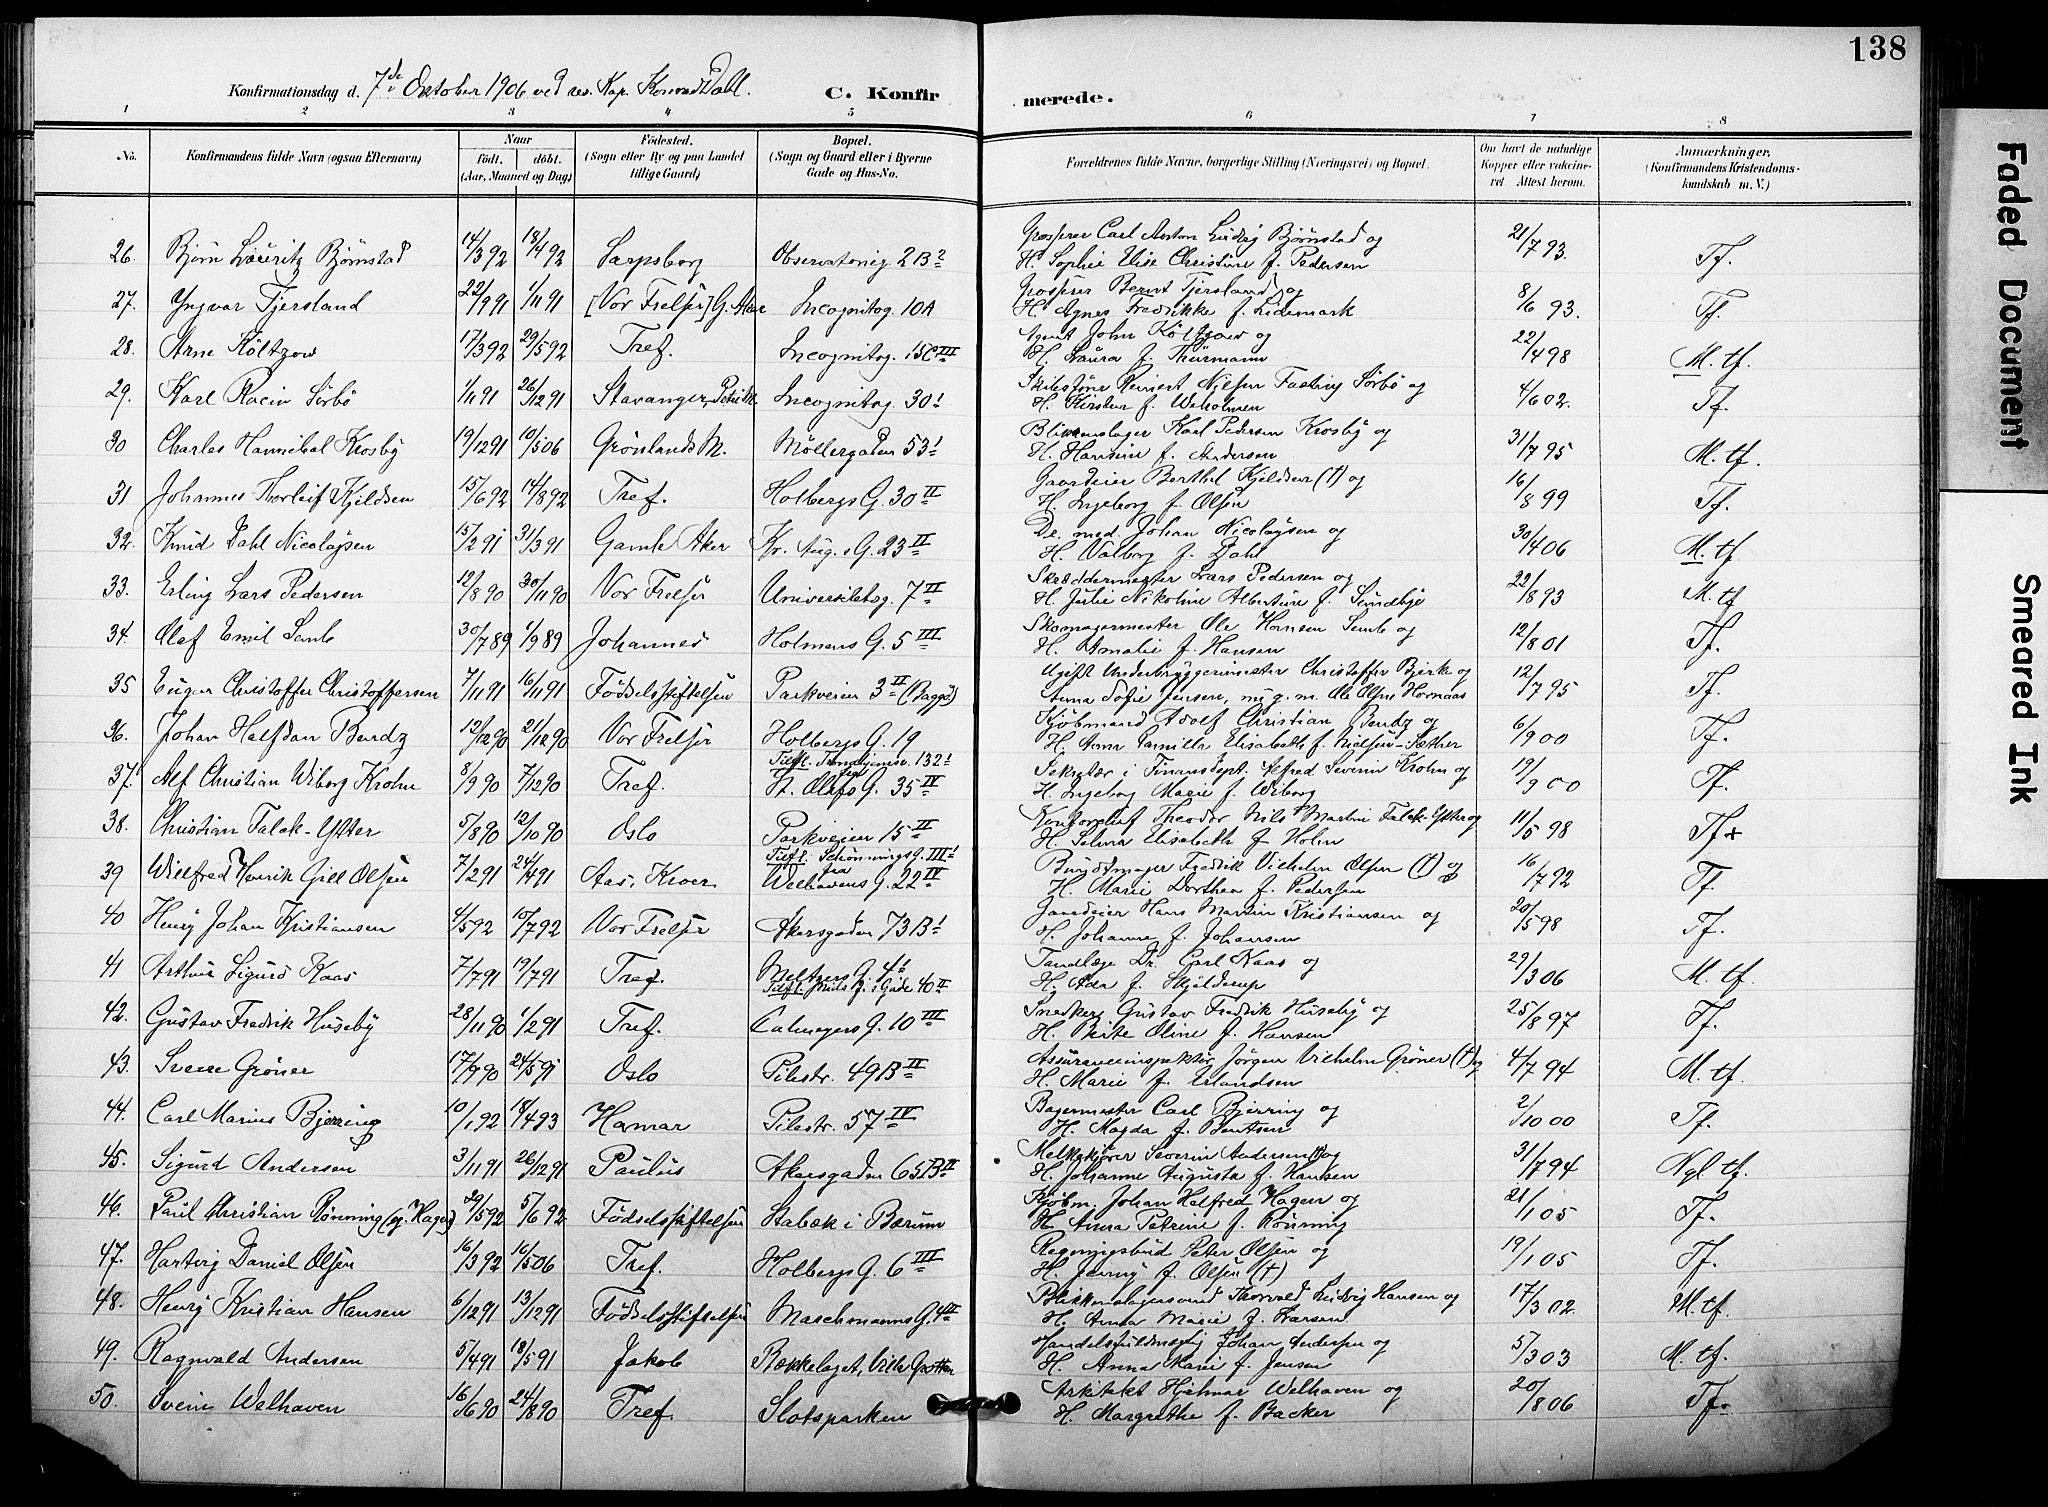 138
Konfirmationsdag d. 7de Oktober 1906 ved res. Kap. Konrad Dahl. C. Konfirmerede.
1 2 3 4 5 6 7 8
No. Konfirmandens fulde Navn (ogsaa Efternavn) Naar født. døbt. (Aar, Maaned og Dag) Fødested. (Sogn eller By og paa Landet tillige Gaard) Bopæl. (Sogn og Gaard eller i Byerne Gade og Hus-No. Forældrenes fulde Navne, borgerlige Stilling (Næringsvei) og Bopæl. Om havt de naturlige Kopper eller vaccineret. Attest herom. Anmærkninger. (Konfirmandens Kristendomskundskab m. V.)
26. Bjørn Lauritz Bjørnstad 14/3 92 18/4 92 Sarpsborg Observatorieg. 2B² Grosserer Carl Anton Ludvig Bjørnstad og 21/7 93. Tf.
H. Sophie Elise Christine f. Pedersen
27. Yngvar Tjersland 22/9 91 1/11 91 [Vor Frelser] G. Aker Incognitog. 10A Grosserer Bernt Tjersland og 8/6 93. Tf.
H. Agnes Fredrikke f. Lidemark
28. Arne Költzow 17/3 92 29/5 92 Tref. Incognitog. 15C III Agent John Költzow og 22/4 98 M. tf.
H. Laura f. Thurmann
29. Karl Racin Sörbö 1/11 91 26/12 91 Stavanger, Petri Incognitog. 30¹ Skibsförer Reinert Nielsen Fasting Sörbö og 4/6 02. Tf.
H. Kirstine f.
30 Charles Hannibal Krosby 19/12 91 10/5 06 Grønlands M. Møllergaden 53¹ Blikkenslager Karl Pedersen Krosby og 31/7 95 M. tf.
H. Hansine f. Andersen
31 Johannes Thorleif Kjeldsen 15/6 92 14/8 92 Tref. Holbergs G. 30 II Gaardeier Berthel Kjeldsen (†) og 16/8 99 Tf.
H. Ingeborg f. Olsen
32. Knud Dahl Nicolaysen 15/2 91 31/3 91 Gamle Aker Kr. Aug. s G. 23 II Dr. med. Johan Nicolaysen og 30/4 06 M. tf.
H. Valborg f. Dahl
33. Erling Lars Pedersen 12/8 90 30/11 90 Vor Frelser Universitetsg. 7 II Skræddermester Lars Pedersen og 22/8 93 M. tf
H. Julie Nikoline Albertine f. Sundbye
34. Olaf Emil Semb 30/7 89 1/9 89 Johannes Holmens G. 5 III Skomagermester Ole Hansen Semb og 12/8 01 Tf.
H. Amalie f. Hansen
35 Eugen Christoffer Christoffersen 7/11 91 16/11 91 Fødselsstiftelsen Parkveien 3 II (Baggd) Ugift Underbryggerimester Christoffer Bjerke og 12/7 95 Tf.
Anna Sofie Jensen, nu g. m. Ole Olsen Hornaas
36. Johan Halfdan Bendz 12/12 90 21/12 90 Vor Frelser Holbergs G. 19 Kjøbmand Adolf Christian Bendz og 6/9 00 Tf.
H. Anna Pernille Elisabeth f. Nielsen-Sæther
37. Alf Christian Wiborg Krohn 8/9 90 7/12 90 Tref. Tilfl. Trondhjemsv. 132¹ fra St. Olafs G. 35 II Sekretær i Finansdept. Alfred Severin Krohn og 19/9 00 Tf.
H. Ingeborg Marie f. Wiborg
38. Christian Falck-Ytter 5/8 90 12/10 90 Oslo Parkveien 15 II Kontorchef Theodor Nils Martin Falck-Ytter og 11/5 98 Tf+
H. Selma Elisabeth f. Holm
39 Wilfred Henrik Gill Olsen 7/2 91 24/4 91 Aas, Kroer Tilfl. Schønnings G. III¹ fra Welhavens G. 22 IV Buntmager Fredrik Vilhelm Olsen (†) og 16/7 92 Tf.
H. Marie Dorthea f. Pedersen
40 Henry Johan Kristiansen 4/5 92 10/7 92 Vor Frelser Akersgaden 73B¹ Gaardeier Hans Martin Kristiansen og 20/5 98 Tf.
H. Johanne f. Johansen
41 Arthur Sigurd Kaas 7/7 91 19/7 91 Tref. Meltzers G. 4 Tandlæge Dr. Carl Kaas og 29/3 06 M. tf.
Tilfl. Niels Juels Gade 40 II H. Ada f. Skjelderup
42. Gustav Fredrik Huseby 28/11 90 1/2 91 Tref. Calmeyers G. 10 III Snedker Gustav Fredrik Huseby og 25/8 97 Tf.
H. Beate Oline f. Hansen
43. Sverre Grøner 17/9 90 24/5 91 Oslo Pilestr. 49B II Assuranceinspektør Jørgen Vilhelm Grøner (†) og 4/7 94 M. tf.
H. Marie f. Erlandsen
44. Carl Marius Bjerring 10/1 92 18/4 93 Hamar Pilestr. 57 IV Bagermester Carl Bjerring og 2/10 00 Tf.
H. Magda f. Bentsen
45. Sigurd Andersen 3/11 91 26/12 91 Paulus Akersgaden 65B II Melkekjører Severin Andersen og 31/7 94 Ngl tf.
H. Johanne Augusta f. Hansen
46. Paul Christian Rønning (og Hagen) 29/5 92 5/6 92 Fødselsstiftelsen Stabæk i Bærum Kjøbm. Johan Halfred Hagen og 21/1 05 Tf.
H. Anna Petrine f. Rønning
47. Hartvig Daniel Olsen 16/3 92 16/5 06 Tref. Holbergs G. 6 III Regningsbud Peter Olsen og 19/1 05 Tf.
H. Jenny f. Olsen (†)
48. Henry Kristian Hansen 6/12 91 13/12 91 Fødselsstiftelsen Maschmanns G. 4 III Blikkenslagersvend Thorvald Ludvig Hansen og 17/3 02 M. tf.
H. Anna Marie f. Larsen
49. Ragnvald Andersen 5/4 91 18/5 91 Jakob Bækkelaget, Villa Grotten Handelsfuldmægtig Johan Andersen og 5/3 03 M. tf.
H. Anna Marie f. Jensen
50. Svein Welhaven 16/6 90 24/8 90 Tref. Slotsparken Arkitekt Hjalmar Welhaven og 20/8 06 Tf.
H. Margrethe f. Backer
Faded Document
Smeared Ink